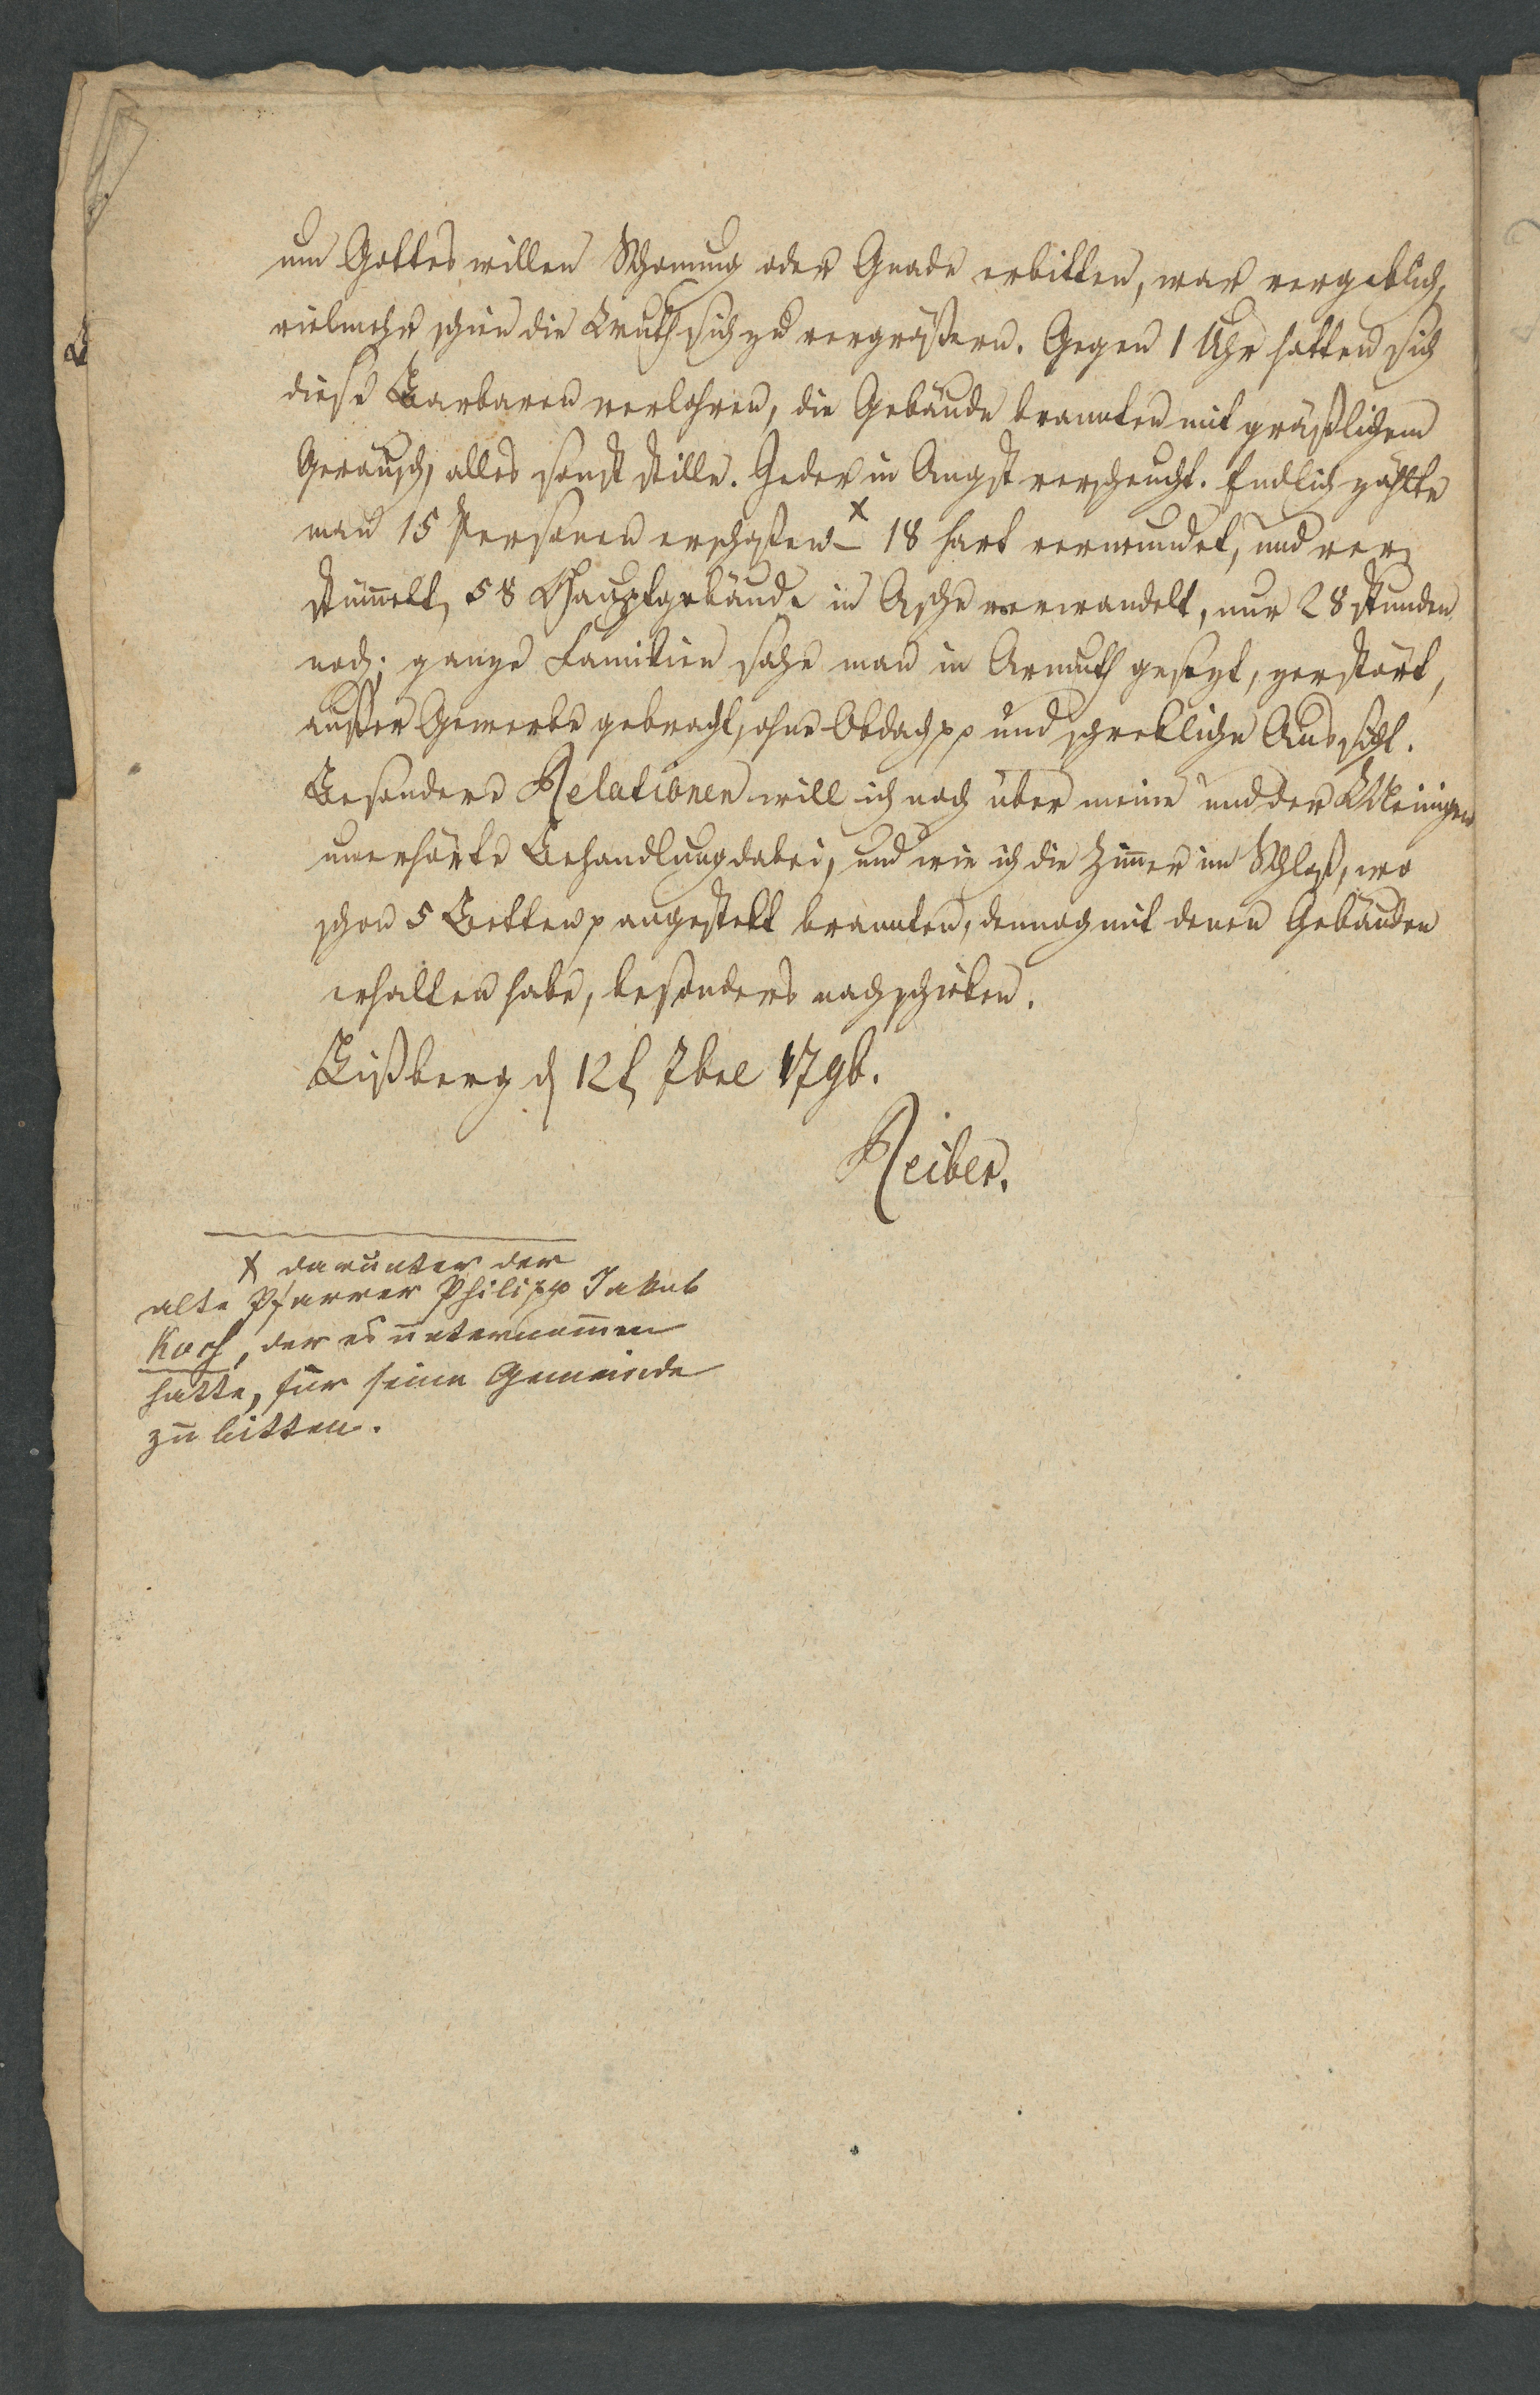 um Gottes willen Schonung oder Gnade erbitten, war vergeblich,
vielmehr schien die Wuth sich zu vergrößern. Gegen 1 Uhr hatten sich
diese Barbaren verlohren, die Gebäude brannten mit gräßlichem
Geräusch, alles sonst stille. Jeder in Angst verscheucht. Endlich zählte
man 15 Personen erschoßen x – 18 hart verwundet, und ver-
stümelt, 58 Hauptgebäude in Asche verwandelt, nur 28 stunden
noch; ganze Familien sahe man in Armuth gesezt, zerstört,
außer Gewerbe gebracht, ohne Obdach pp und schrekliche Aussicht.
Besondere Relationen will ich noch über meine und der Meinigen
unerhörte Behandlung dabei, und wie ich die Zimer im Schloß, wo
schon 5 Betten p angestekt brannten, dennoch mit denen Gebäuden
erhalten habe, besonders nachschicken.
Lißberg d 12t 7bre 1796.
Reiber.
x darunter der
alte Pfarrer Philipp Jakob
Koch, der es unternomen
hatte, für seine Gemeinde
zu bitten.